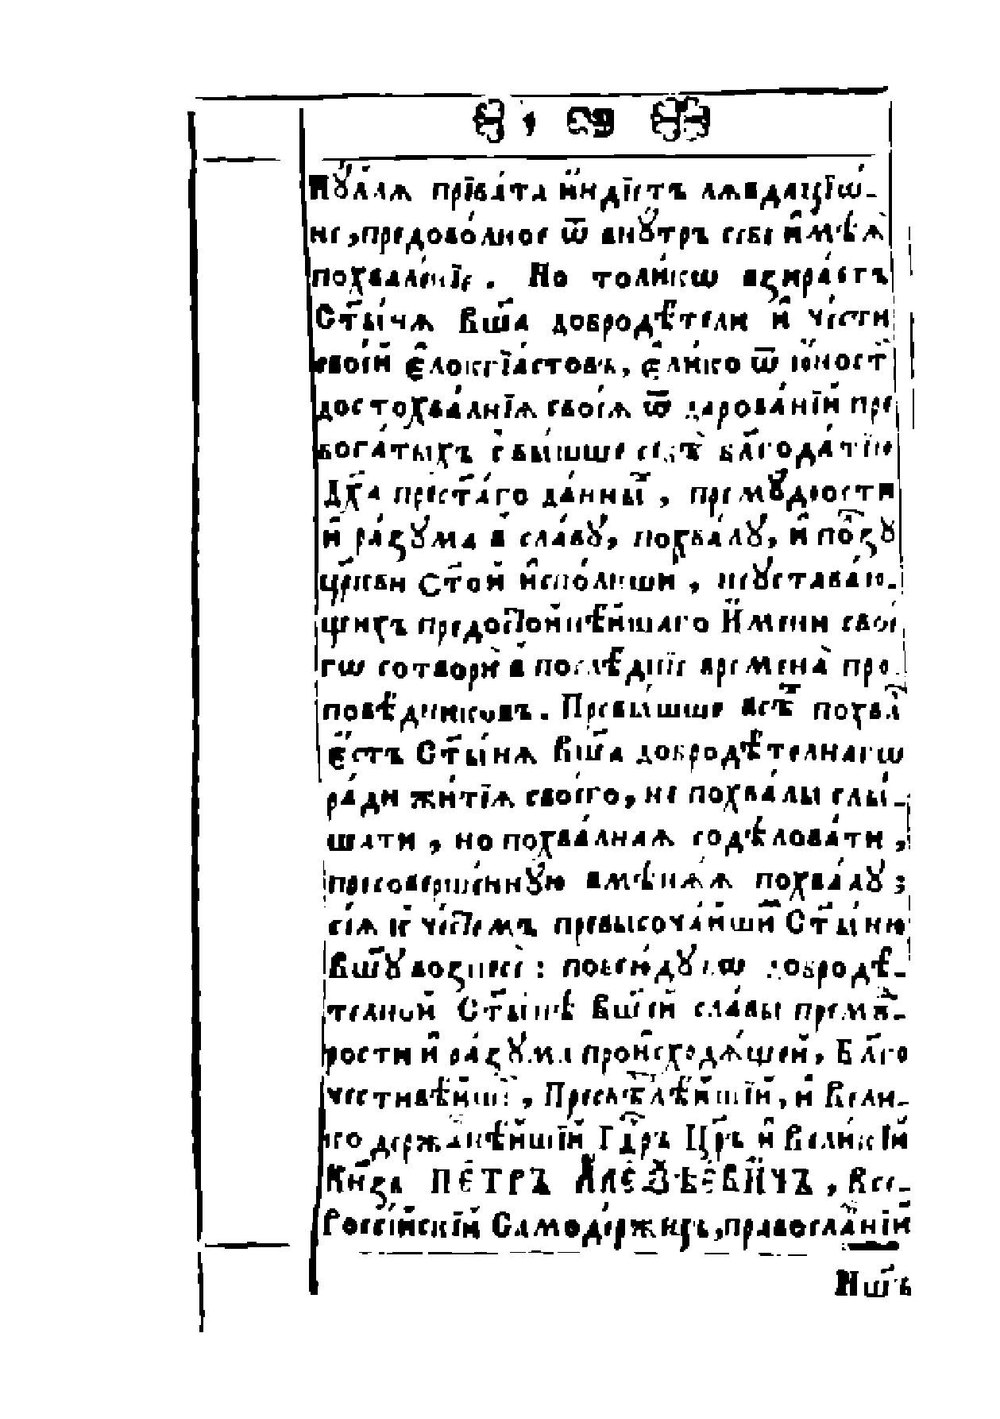 нꙋ́ллѧ прїва́та и҆́ндїетъ лѧвдацїѡ-
не, предово́лное ѿ внꙋ́трь себѐ и҆мѣ́ѧ
похвале́нїе. Но толи́кѡ взира́етъ
Ст҃ы́нѧ Ва́ша добродѣ́тели и҆ че́сти
свое́й є҆локвїа́стовъ, є҆ли́ко ѿ ю҆́ности
достохва́лнїѧ своеѧ̀ ѿ дарова́нїй пре
бога́тыхъ свы́шше себѣ̀ бл҃года́тїю
Дх҃а прест҃а́го да́нны, премꙋ́дрости
и҆ ра́зꙋма в сла́вꙋ, похвалꙋ̀, и҆ по́лзꙋ
цр҃кви Ст҃о́й и҆спо́лнши, неꙋставаю-
щихъ предостойнѣ́йшаго И҆́мени свое
гѡ̀ сотворѝ в послѣ́днїе времена̀ про
повѣ́дниковъ. Превы́шше всѣ́хъ похва́л
є҆́стъ Ст҃ы́нѧ Ва́ша добродѣ́телнагѡ
ра́ди житїѧ̀ своего̀, не похвалы̀ слы́-
шати, но похва́лнаѧ содѣ́ловати,
пресоверше́ннꙋю вмѣнѧ́ѧ похвалꙋ̀;
сїѧ̀ и҆ че́стемъ превысоча́йшим Ст҃ы́ню
Ва́шꙋ вознесѐ: повсю́дꙋ сѡ добродѣ́-
телной Ст҃ы́нѣ Ва́шей сла́вы премꙋ́д-
рости и҆ ра́зꙋма происходѧ́щей, Бл҃го
чести́вѣйшїй, Пресвѣтлѣ́йшїй, и҆ Вели-
кодержа́внѣйшїй Гдⷭ҇рь Цр҃ь и҆ Вели́кїй
Кнѧ́зь ПЕ́ТРЪ А҆ЛЕѮЇЕ́ВИЧЪ, Все-
Россі́йскїй Самоде́ржецъ, правосла́вїй
Ншⷯъ